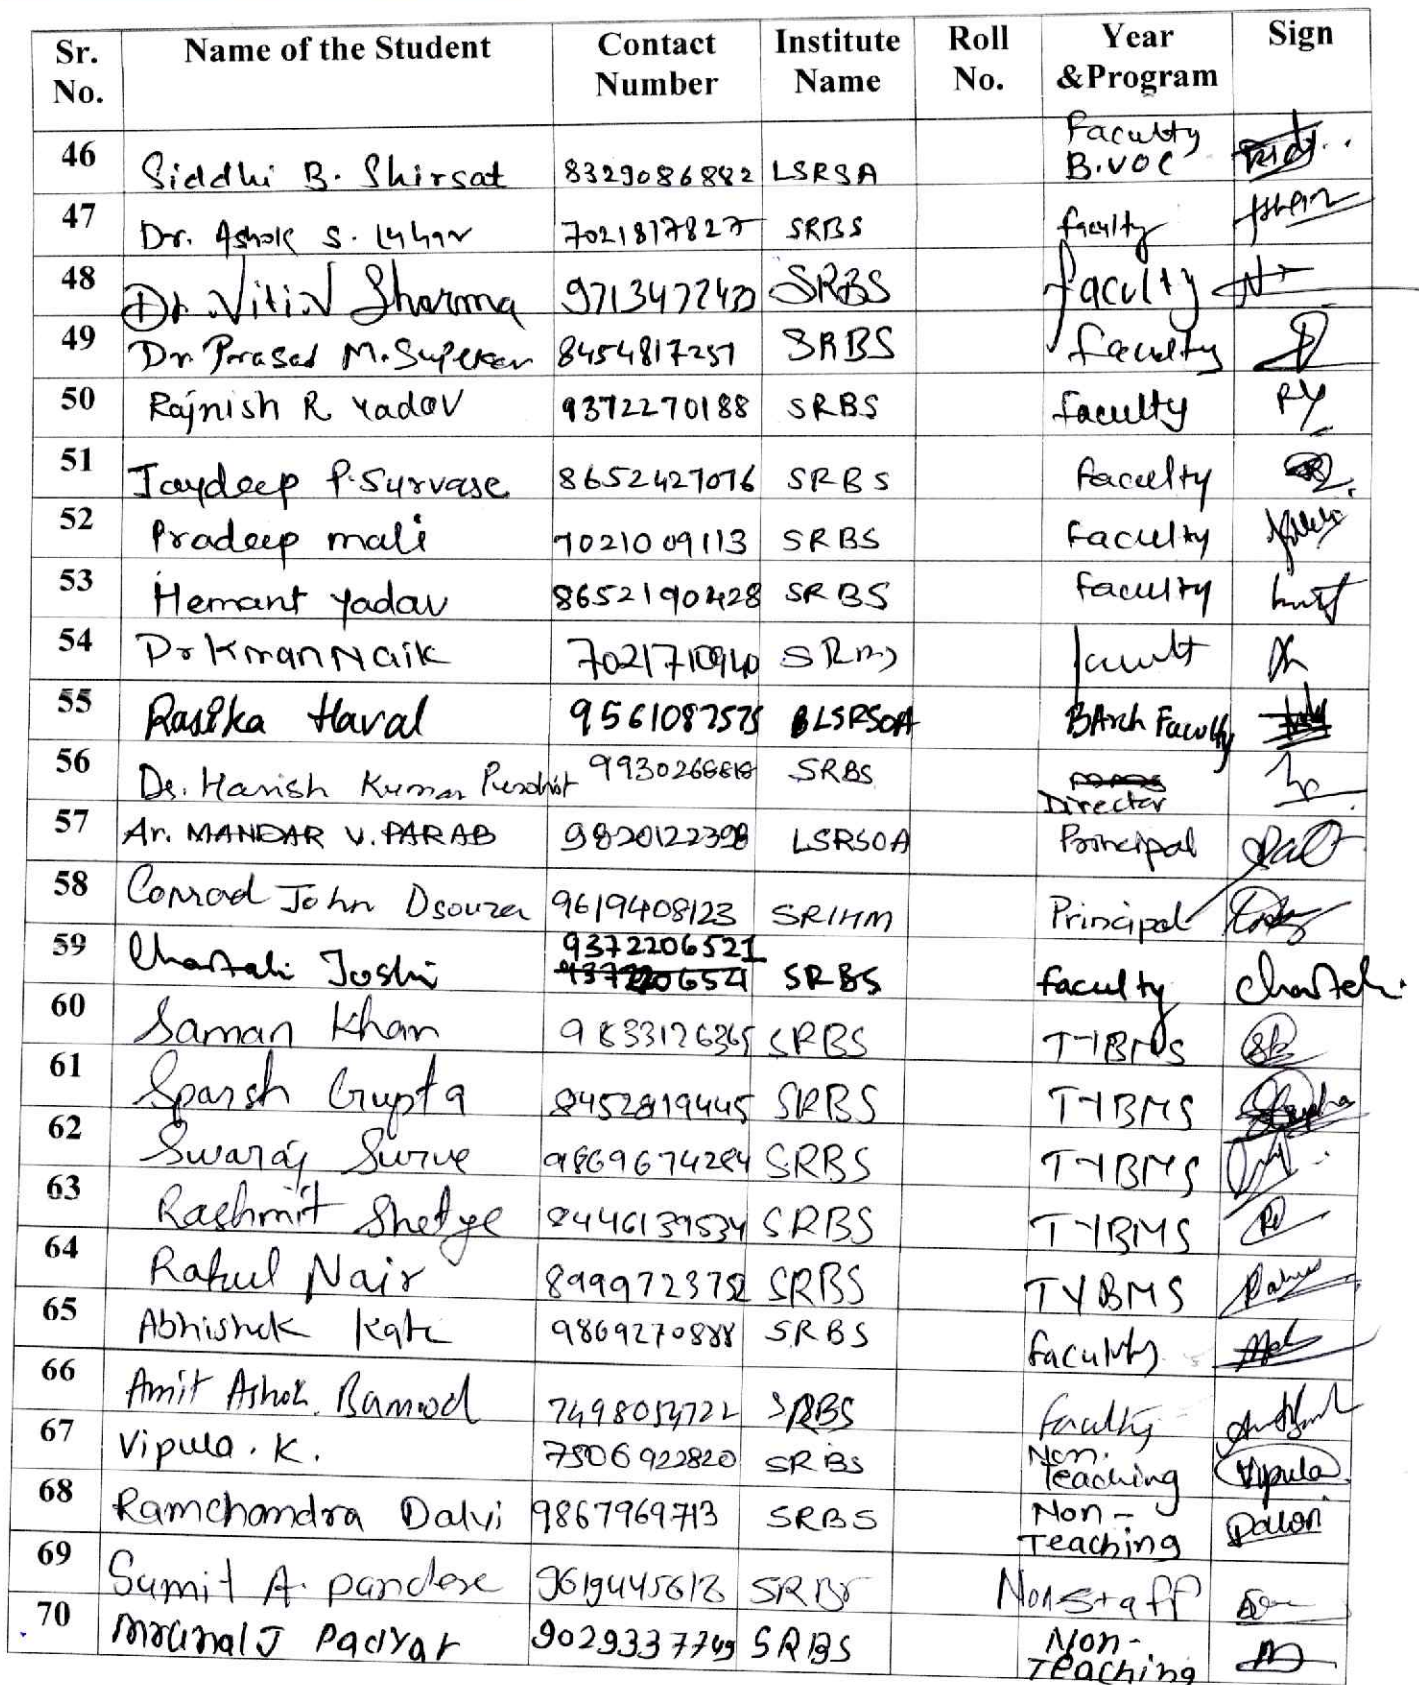 Sr. No. Name of the Student Contact Number Institute Name Roll No. Year &Program Sign
46 Siddhi B. Shirsat 8329086882 LSRSA Faculty B.VOC
47 Dr. Ashok S. Luhar 7021817827 SRBS faculty
48 Dr. Nitin Sharma 9713477243 SRBS faculty
49 Dr Prasad M. Supekar 8454817251 SRBS faculty
50 Rajnish R Yadav 9372270188 SRBS faculty RY
51 Jaydeep P. Survase 8652427076 SRBS faculty
52 Pradeep mali 7021009113 SRBS Faculty
53 Hemant Yadav 8652190428 SRBS faculty
54 Dr Kiran Naik
55 Rasika Haval 9561087575 LSRSOA BArch Faculty
56 Dr. Harish Kumar Purohit SRBS Director
57 Ar. MANDAR V. PARAB 9820122398 LSRSOA Principal
58 Conrad John Dsouza 9619408123 SRIHM Principal
59 Chaitali Joshi 9372206521 SRBS faculty
60 Saman Khan 9833126365 SRBS TYBMS
61 Sparsh Gupta 8452819445 SRBS TYBMS
62 Swaraj Surve 9869674284 SRBS TYBMS
63 Rashmit Shetye 8446139534 SRBS TYBMS
64 Rahul Nair 8999723752 SRBS TYBMS
65 Abhishek Kate 9869270888 SRBS faculty
66 Amit Ashok SRBS faculty
67 Vipula. K. 7506922820 SRBS Non. Teaching Vipula
68 Ramchandra Dalvi 9867969713 SRBS Non-Teaching
69 Sumit A. pandere 9619445618 SRBS Non-Staff
70 Mrunal J Padyar 9029337749 SRBS Non-Teaching